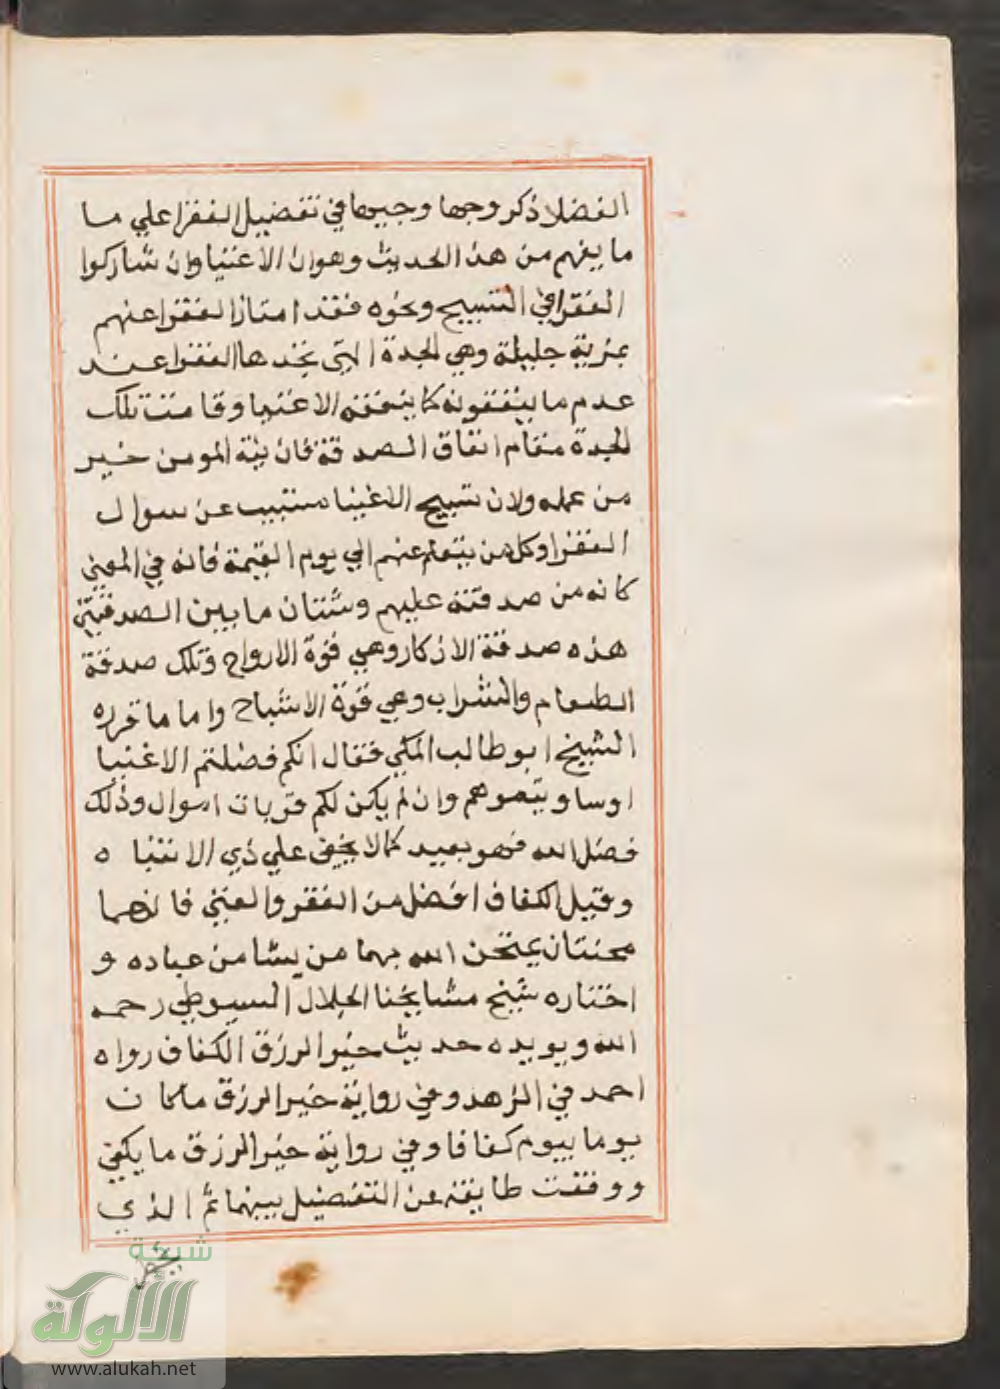 الفضلا ذكر وجها وجيها في تفضيل الفقرا علي ما
ما يفهم من هذا الحديث وهوان الاغنيا وان شاركوا
الفقرا في التسبيح ونحوه فقد امتاز الفقرا عنهم
بمزية جليلة وهي الجدة التي يجدها الفقرا عند
عدم ما ينفقونه كما ينفقه الاغنيا وقامت تلك
الجدة مقام انفاق الصدقة فان نية المومن خير
من عمله ولان تسبيح الاغنيا متسبب عن سوال
الفقرا وكل من يتعلم عنهم الي يوم القيمة فانه في المعني
كانه من صدقته عليهم وشتان ما بين الصدقتين
هذه صدقة الاذكار وهي قوة الارواح وتلك صدقة
الطعام والشراب وهي قوة الاشباح واما ما قرره
الشيخ ابو طالب المكي فقال انكم فضلتم الاغنيا
اوساويتموهم وان لم يكن لكم قربات اموال وذلك
فضل الله فهو بعيد كما لا يخفي علي ذي الانتباه
وقيل الكفاف افضل من الفقر والغني فانهما
محنتان يمتحن الله بهما من يشا من عباده و
اختاره شيخ مشايخنا الجلال السيوطي رحمه
الله ويويده حديث خير الرزق الكفاف رواه
احمد في الزهد وفي رواية خير الرزق ما كان
يوما بيوم كفافا وفي رواية خير الرزق ما يكفي
ووقفت طايفة عن التفضيل بينهما ثم الذي
شبكة
الألوكة
www.alukah.net